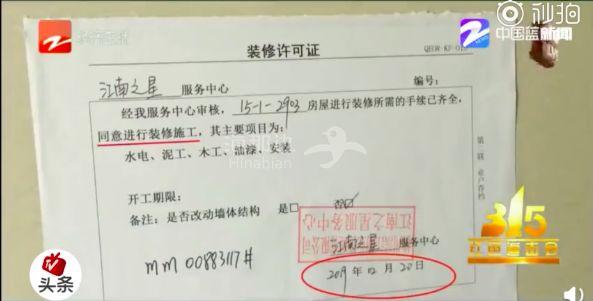 秒拍
中国蓝新闻
装修许可证
QEHR-KF-015
江南之星 服务中心 编号:
经我服务中心审核, 15-1-2903 房屋进行装修所需的手续已齐全,
同意进行装修施工, 其主要项目为:
水电、泥工、木工、油漆、安装
海那边
Hinabian
开工期限:
备注: 是否改动墙体结构 是□ 否☑
第二联 业户存档
江南之星服务中心
江南之星 服务中心
2019年12月20日
mm 00883117#
315
头条